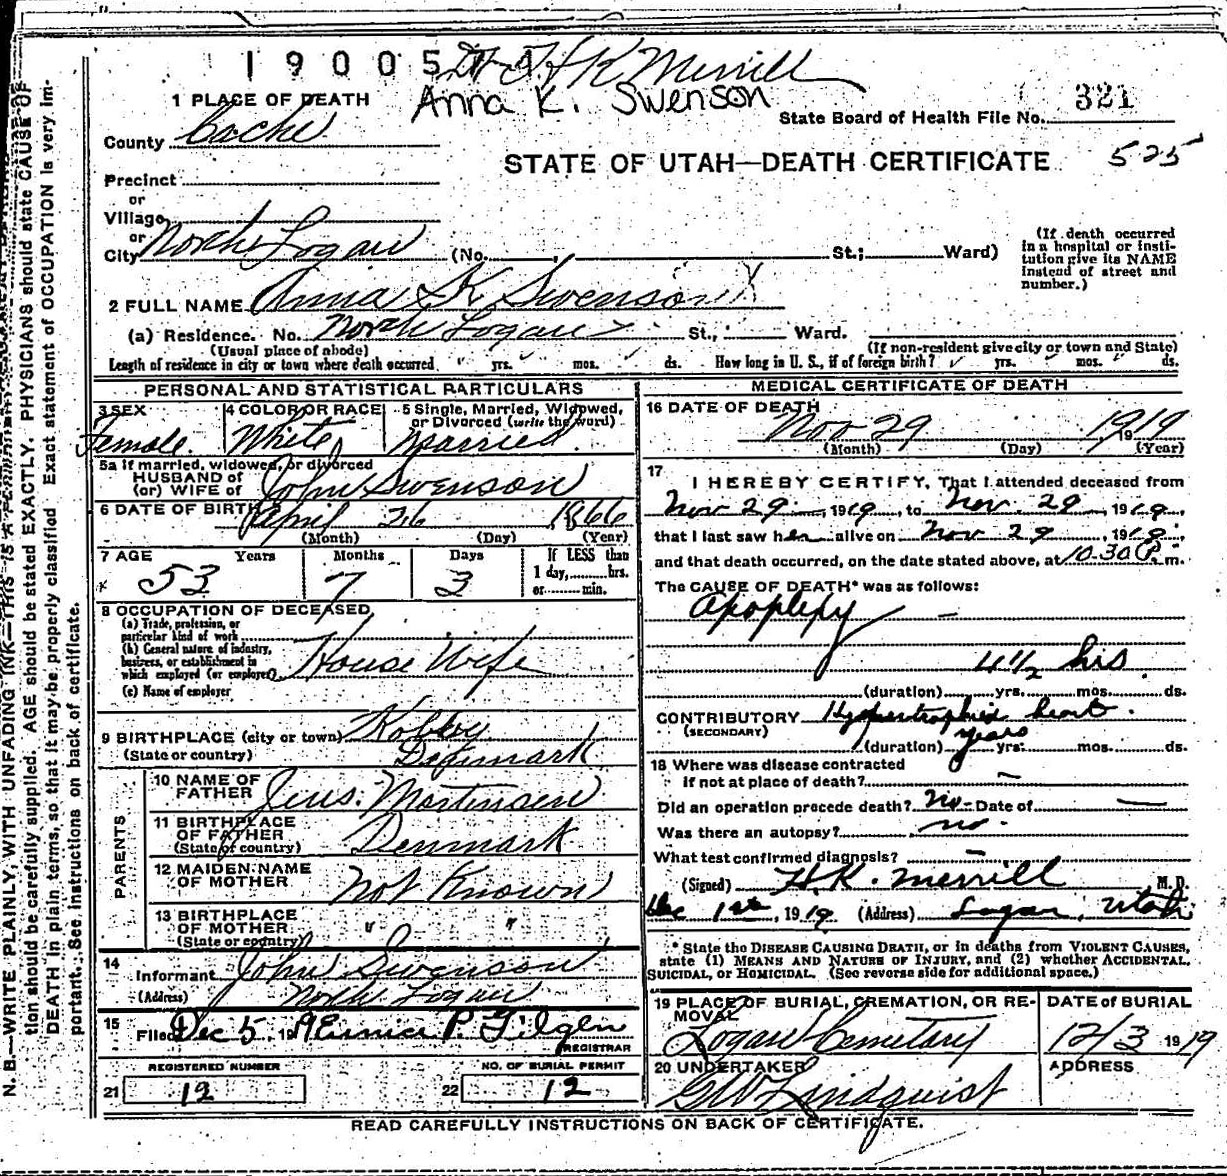 19005
Dr H K Merrill
Anna K. Swenson
1 PLACE OF DEATH
State Board of Health File No. 321
County Cache
STATE OF UTAH—DEATH CERTIFICATE 525
Precinct
or
Village
or
City North Logan (No. , St.; Ward)
(If death occurred in a hospital or institution give its NAME instead of street and number.)
2 FULL NAME Anna K Swenson
(a) Residence. No. North Logan St., Ward.
(Usual place of abode) (If non-resident give city or town and State)
Length of residence in city or town where death occurred yrs. mos. ds. How long in U. S., if of foreign birth? yrs. mos. ds.
PERSONAL AND STATISTICAL PARTICULARS
3 SEX 4 COLOR OR RACE 5 Single, Married, Widowed, or Divorced (write the word)
Female White Married
5a If married, widowed, or divorced
HUSBAND of
(or) WIFE of John Swenson
6 DATE OF BIRTH April 26 1866
(Month) (Day) (Year)
7 AGE Years Months Days If LESS than
1 day, hrs.
or min.
53 7 3
8 OCCUPATION OF DECEASED
(a) Trade, profession, or
particular kind of work
(b) General nature of industry,
business, or establishment in
which employed (or employer) House Wife
(c) Name of employer
9 BIRTHPLACE (city or town)
(State or country) Denmark
PARENTS
10 NAME OF
FATHER Jens. Mortensen
11 BIRTHPLACE
OF FATHER
(State or country) Denmark
12 MAIDEN NAME
OF MOTHER Not Known
13 BIRTHPLACE
OF MOTHER " "
(State or country)
14
Informant John Swenson
(Address) North Logan
15
Filed Dec 5, 19 19 Eunice P. Gilgen
REGISTRAR
REGISTERED NUMBER NO. OF BURIAL PERMIT
21 12 22 12
MEDICAL CERTIFICATE OF DEATH
16 DATE OF DEATH
Nov 29 1919
(Month) (Day) (Year)
17
I HEREBY CERTIFY, That I attended deceased from
Nov 29, 1919, to Nov. 29, 1919,
that I last saw her alive on Nov 29, 1919,
and that death occurred, on the date stated above, at 10.30 P. m.
The CAUSE OF DEATH* was as follows:
Apoplexy
4 1/2 hrs
(duration) yrs. mos. ds.
CONTRIBUTORY Hypertrophied heart.
(SECONDARY)
years
(duration) yrs. mos. ds.
18 Where was disease contracted
if not at place of death? —
Did an operation precede death? No Date of —
Was there an autopsy? no.
What test confirmed diagnosis? —
(Signed) H. K. Merrill M. D.
Dec 1st, 1919 (Address) Logan, Utah
* State the DISEASE CAUSING DEATH, or in deaths from VIOLENT CAUSES,
state (1) MEANS AND NATURE OF INJURY, and (2) whether ACCIDENTAL,
SUICIDAL, or HOMICIDAL. (See reverse side for additional space.)
19 PLACE OF BURIAL, CREMATION, OR REMOVAL DATE of BURIAL
Logan Cemetary 12/3 1919
20 UNDERTAKER ADDRESS
GW Lindquist
READ CAREFULLY INSTRUCTIONS ON BACK OF CERTIFICATE.
N. B.—WRITE PLAINLY, WITH UNFADING INK—THIS IS A PERMANENT
tion should be carefully supplied. AGE should be stated EXACTLY. PHYSICIANS should state CAUSE OF
DEATH in plain terms, so that it may be properly classified. Exact statement of OCCUPATION is very im-
portant. See instructions on back of certificate.